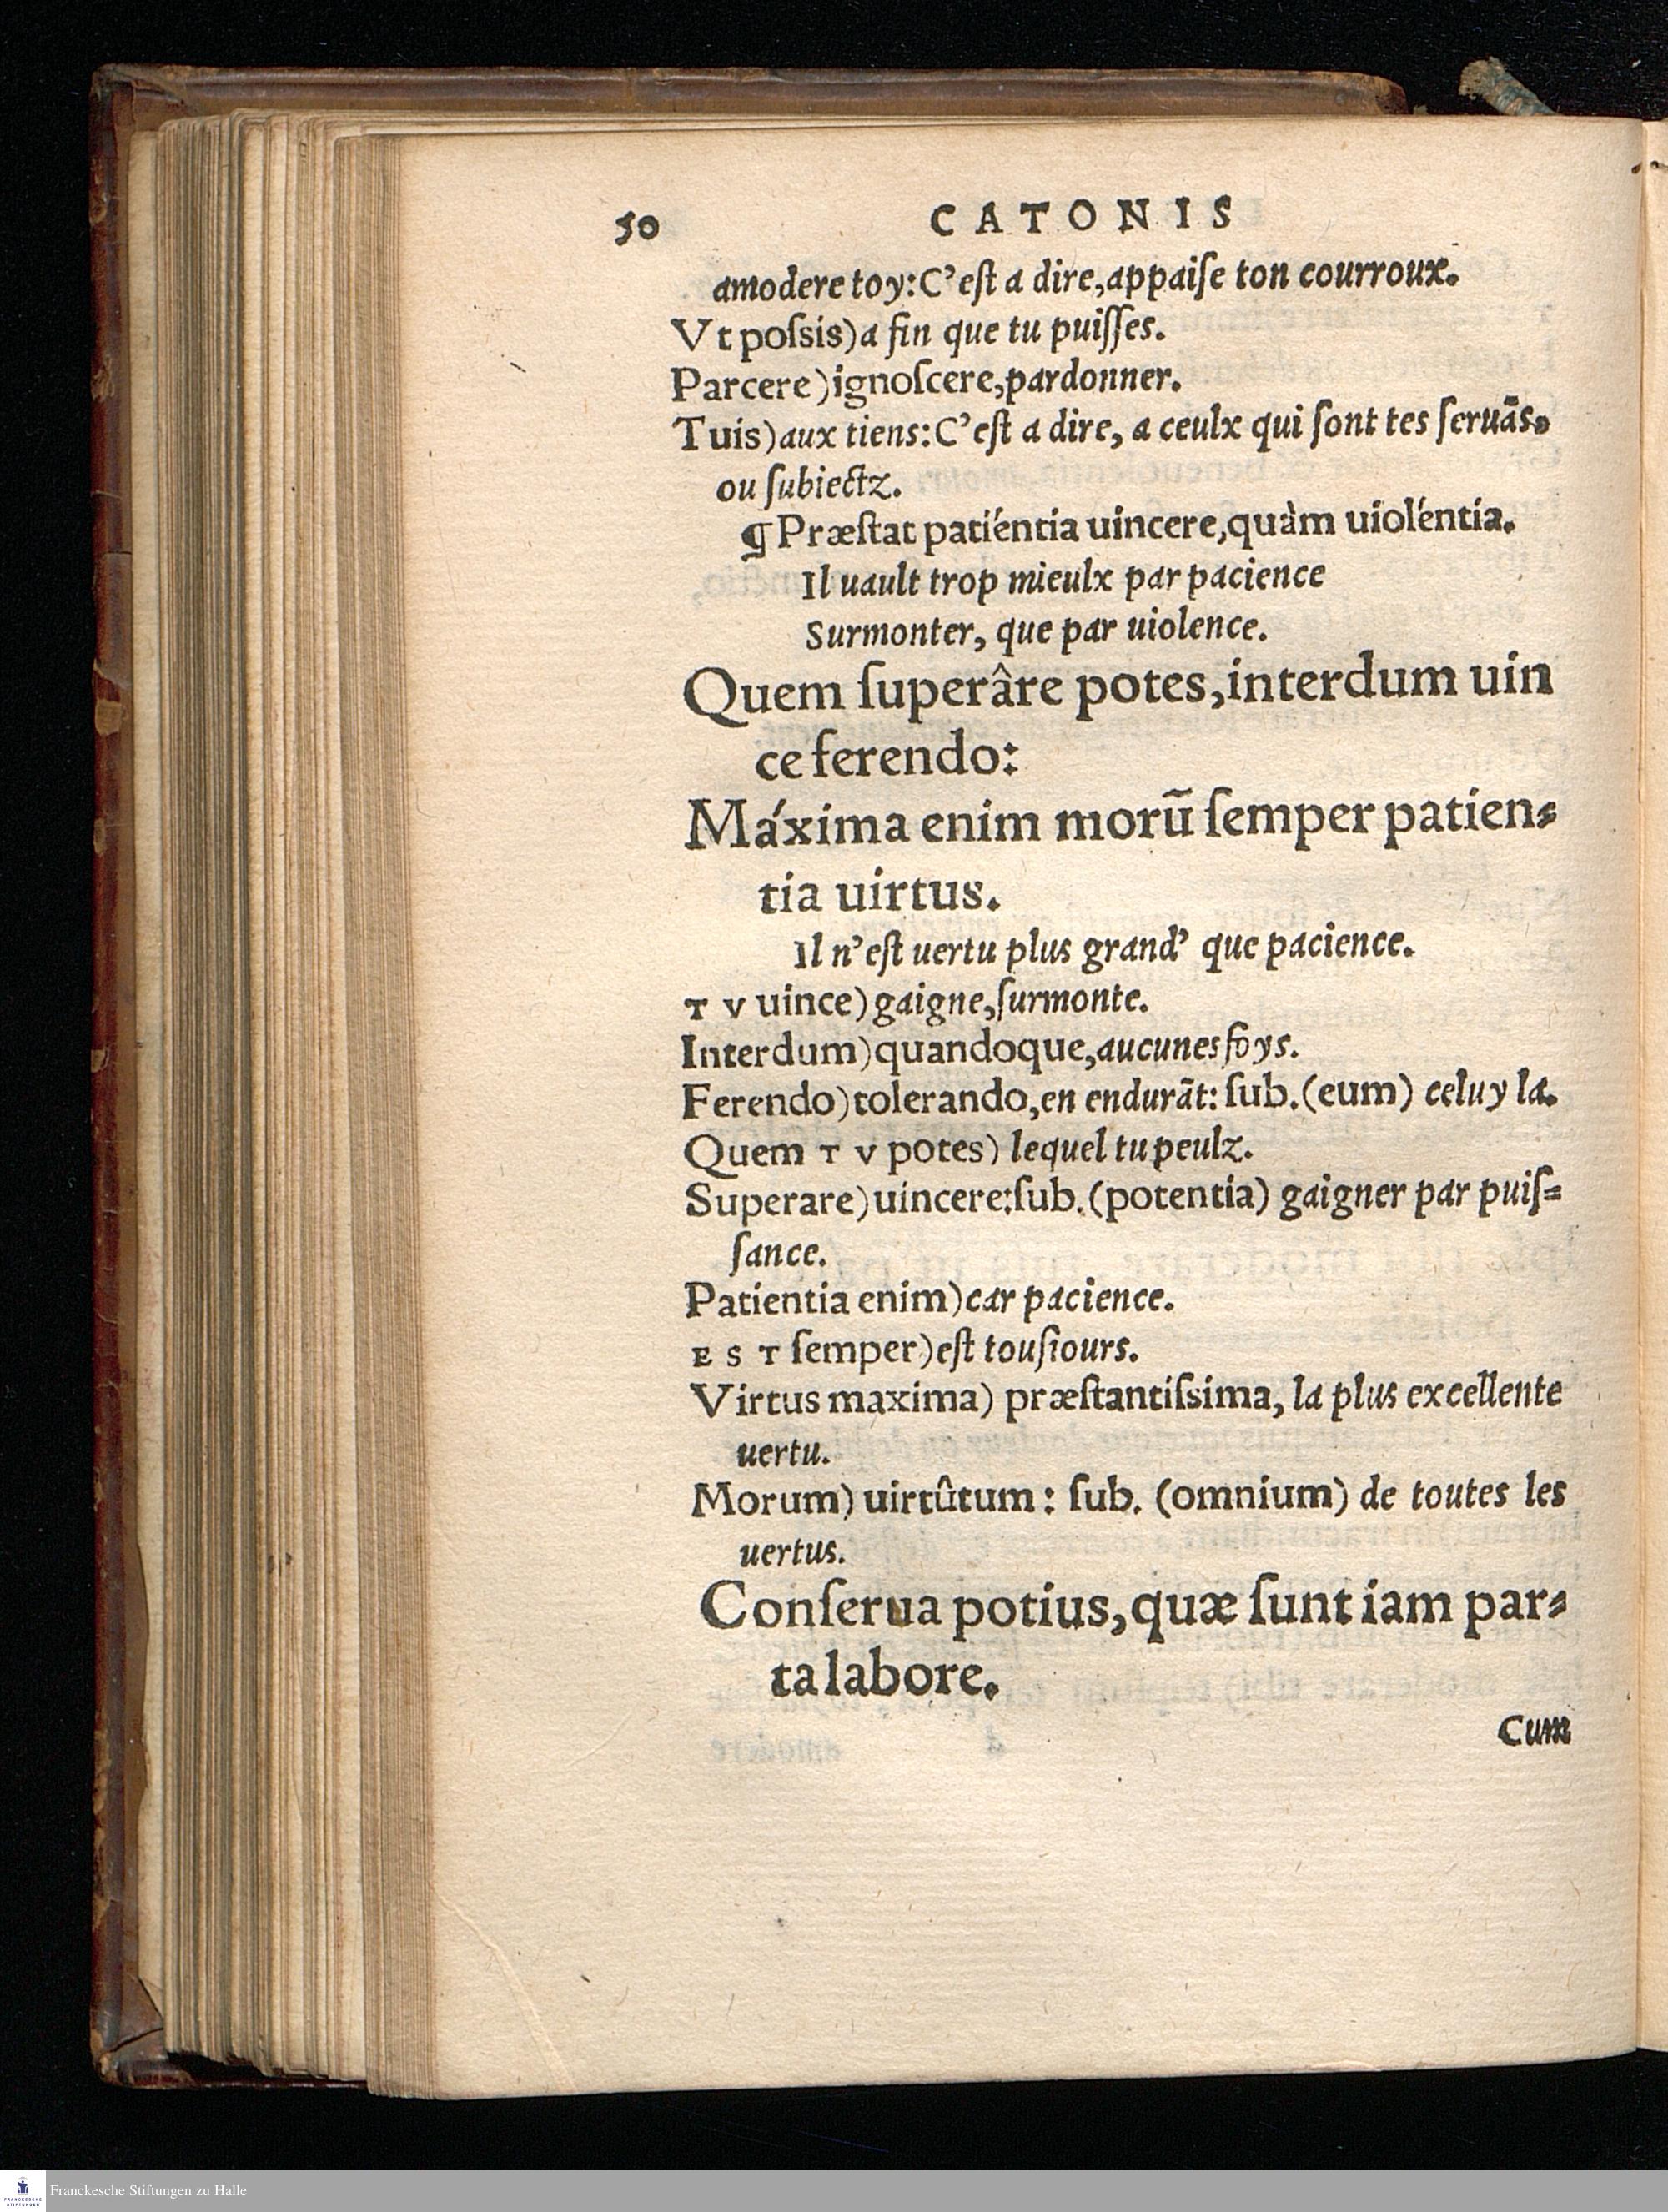 50 CATONIS
amodere toy: C'eſt a dire, appaiſe ton courroux.
Vt poſsis) a fin que tu puiſſes.
Parcere) ignoſcere, pardonner.
Tuis) aux tiens: C'eſt a dire, a ceulx qui ſont tes ſeruãs.
ou ſubiectz.
¶ Præſtat patiéntia uincere, quàm uioléntia.
Il uault trop mieulx par pacience
Surmonter, que par uiolence.
Quem ſuperâre potes, interdum uin
ce ferendo:
Máxima enim morũ ſemper patien-
tia uirtus.
Il n'eſt uertu plus grand' que pacience.
T V uince) gaigne, ſurmonte.
Interdum) quandoque, aucunes foys.
Ferendo) tolerando, en endurãt: ſub. (eum) celuy la.
Quem T V potes) lequel tu peulz.
Superare) uincere: ſub. (potentia) gaigner par puiſ-
ſance.
Patientia enim) car pacience.
E S T ſemper) eſt touſiours.
Virtus maxima) præſtantiſsima, la plus excellente
uertu.
Morum) uirtûtum: ſub. (omnium) de toutes les
uertus.
Conſerua potius, quæ ſunt iam par-
ta labore.
Cum
FRANCKESCHE STIFTUNGEN
Franckesche Stiftungen zu Halle